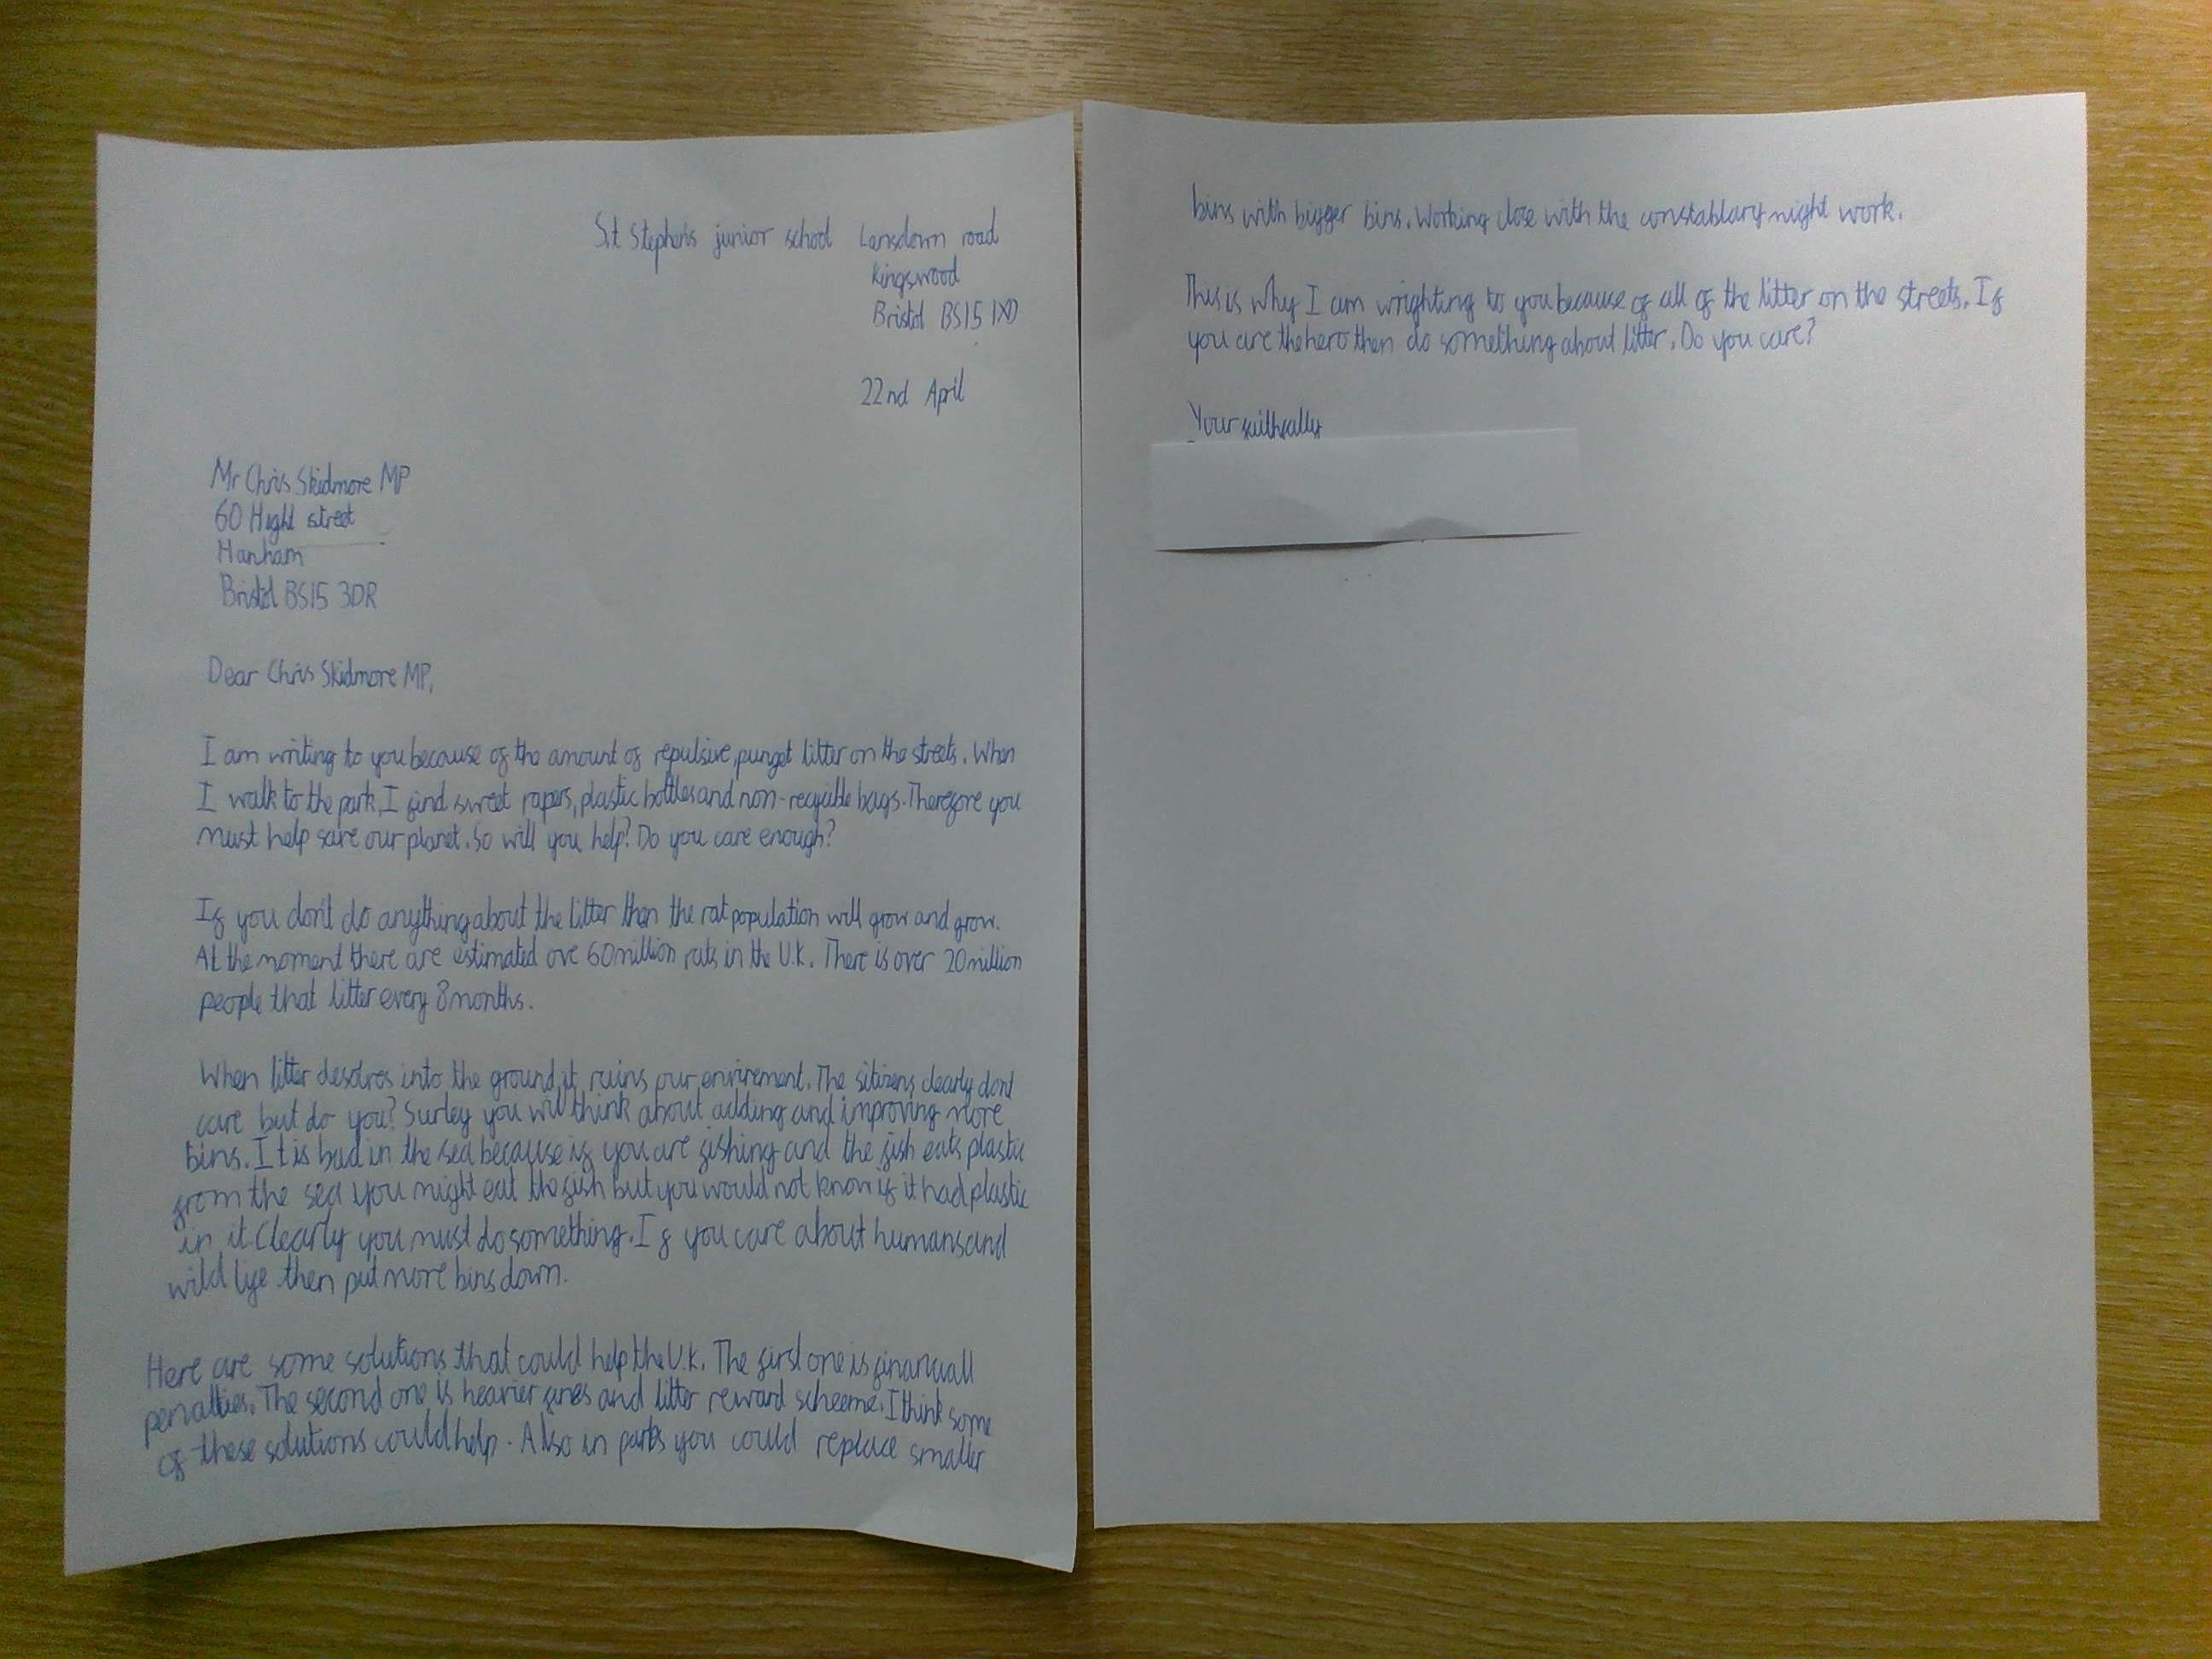 S.t Stephen's junior school Lansdown road
Kingswood
Bristol BS15 1XD
22nd April
Mr Chris Skidmore MP
60 Hight street
Hanham
Bristol BS15 3DR
Dear Chris Skidmore MP,
I am writing to you because of the amount of repulsive, punget litter on the streets. When
I walk to the park, I find sweet rapers, plastic bottles and non-recyclible bags. Therefore you
must help save our planet. So will you help? Do you care enough?
If you don't do anything about the litter then the rat population will grow and grow.
At the moment there are estimated ove 60 million rats in the U.K. There is over 20 million
people that litter every 8 months.
When litter desolves into the ground, it ruins our envirement. The sitizens clearly don't
care but do you? Surley you will think about adding and improving more
bins. It is bad in the sea because if you are fishing and the fish eats plastic
from the sea you might eat the fish but you would not know if it had plastic
in it Clearly you must do something. If you care about humans and
wild life then put more bins down.
Here are some solutions that could help the U.K. The first one is financiall
penalties. The second one is heavier fines and litter reward scheeme. I think some
of these solutions could help. Also in parks you could replace smaller
bins with bigger bins. Working close with the constablary might work.
This is why I am wrighting to you because of all of the litter on the streets. If
you are the hero then do something about litter. Do you care?
Your faithfully